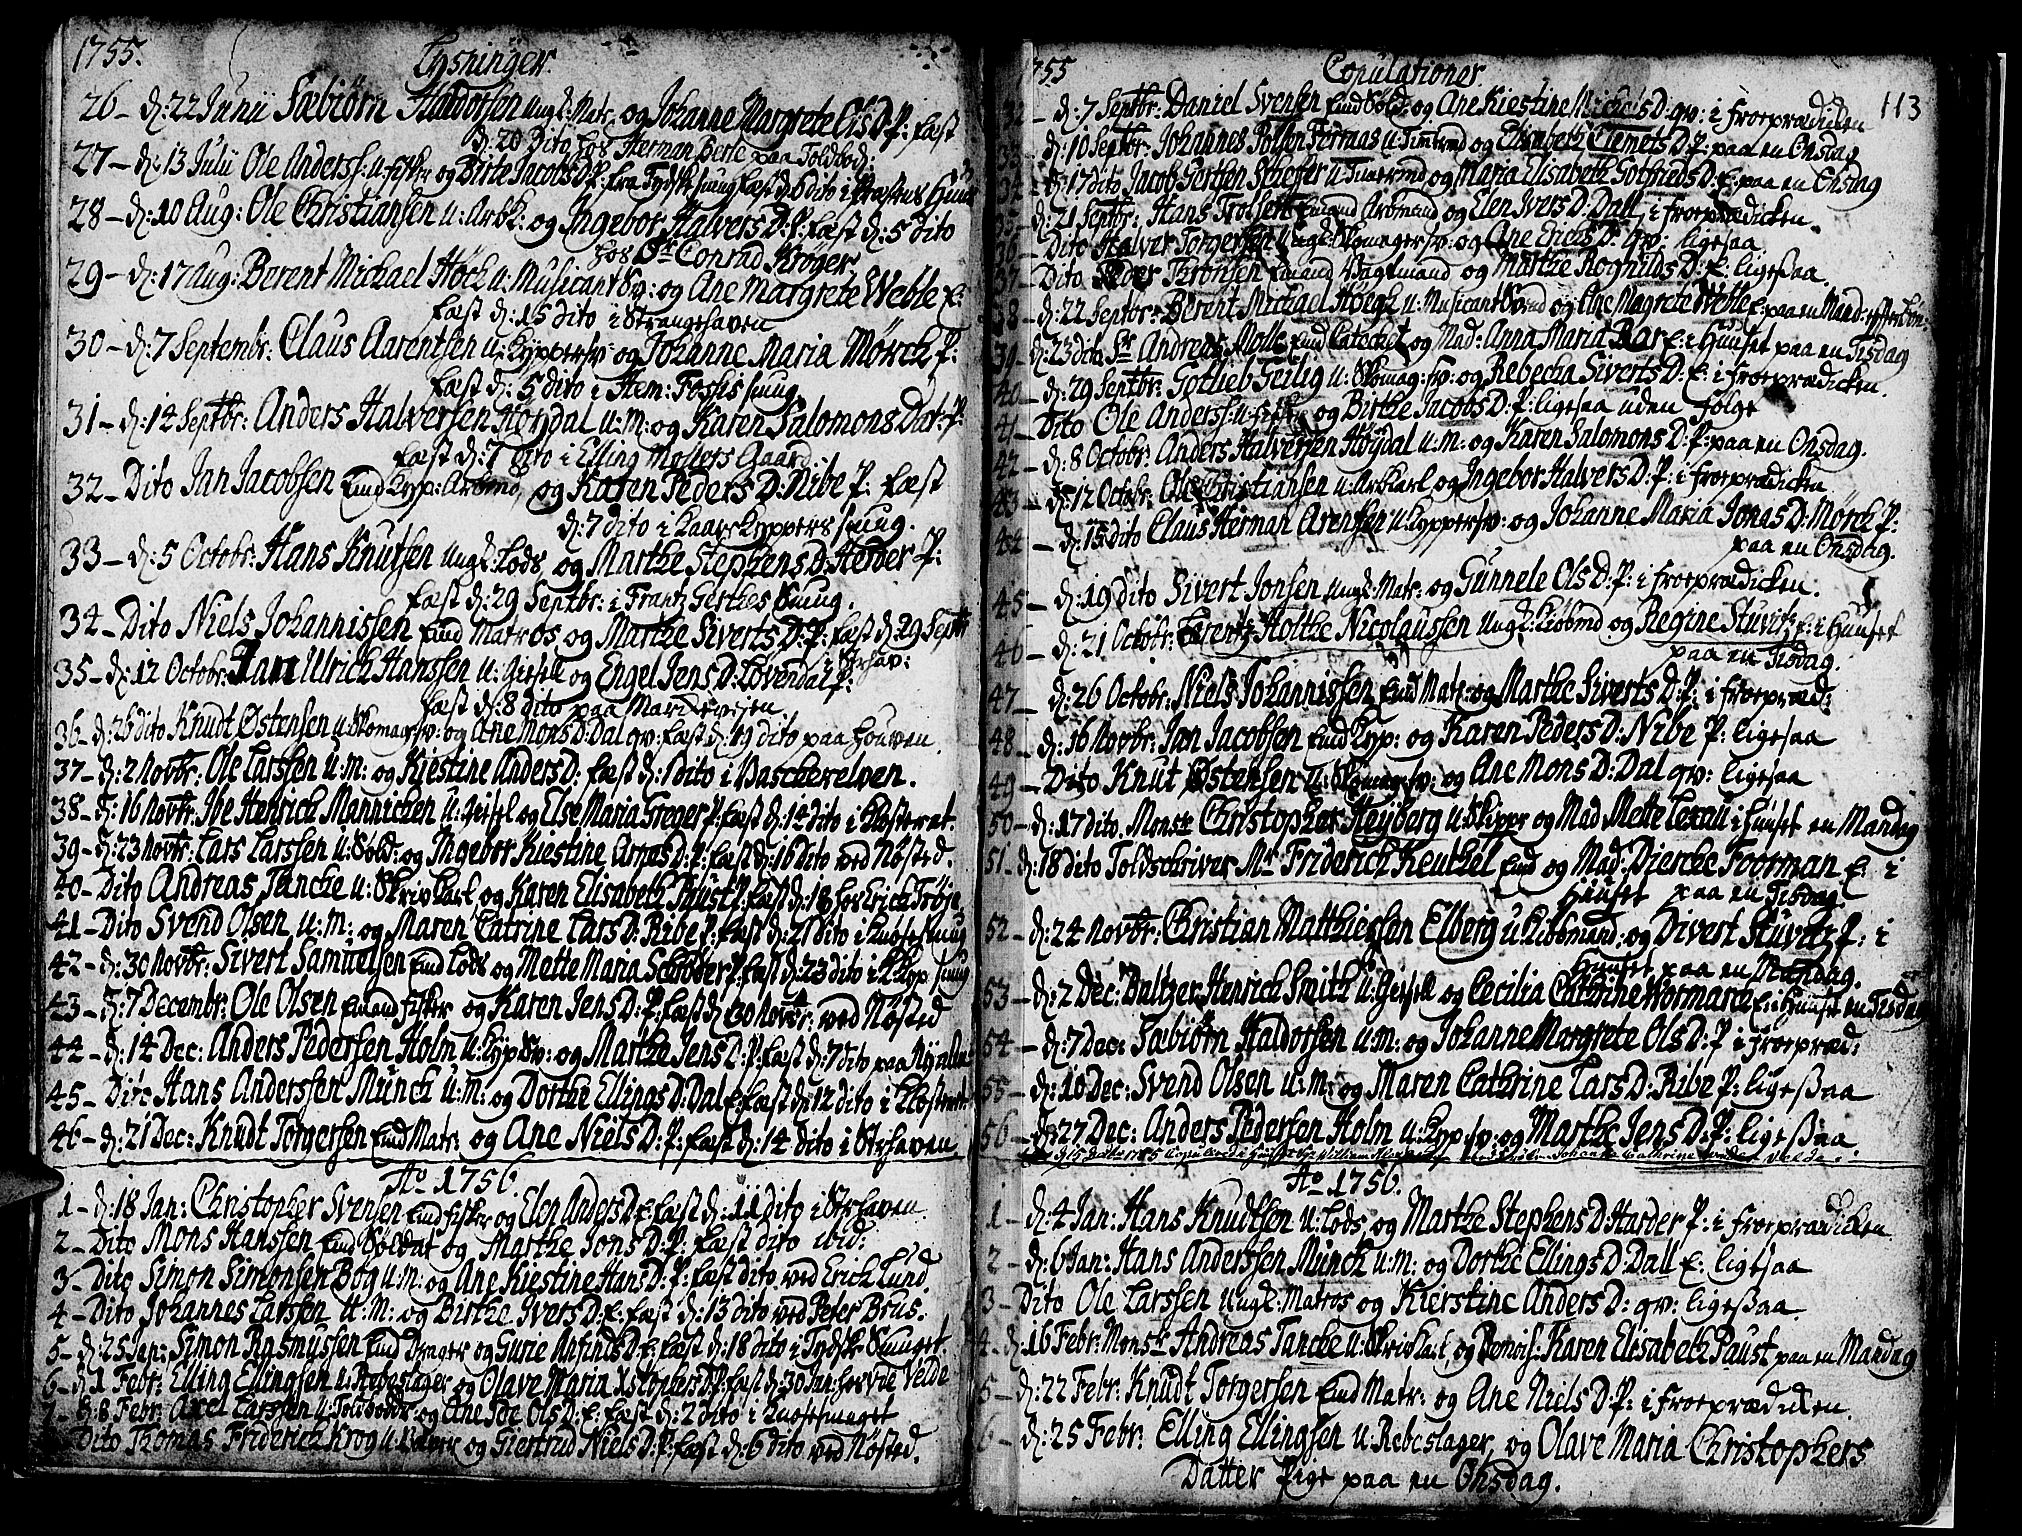 1755. Lysninger.
26 - d: 22 Junii Sæbiörn Haldorsen ungk: Matr: og Johanne Margrete Ols D: P: fæst
d: 20 Dito hos Herman Berle paa Toldbod:
27 - d: 13 Julii Ole Anderss: u: fisker og Birte Jacobs D: P: fra Tydskesmug fæst d: 6 dito i Præstens Huus
28 - d: 10 Aug: Ole Christiansen u: Arbk: og Ingebor Halvers D: P: fæst d: 5 dito
hos Sr Conrad Krøger
29 - d: 17 Aug: Berent Michael Höck u: Musicant Sv: og Ane Margrete Weble E:
fæst d: 15 dito i Strangehaven
30 - d: 7 Septembr: Claus Aarentsen u: Kyppersv: og Johanne Maria Mörck P:
fæst d: 5 dito i Hem: Foshs smug
31 - d: 14 Septbr: Anders Halversen Höydal u: m: og Karen Salomons Dat: P:
fæst d: 7 dito i Elling Mollers Gaard
32 - Dito Jan Jacobsen Emd Kyp: Arbmd og Karen Peders D: Nibe P: fæst
d: 7 dito i Kaars Kyppers smug.
33 - d: 5 Octobr: Hans Knutsen ungk: Lods og Marthe Stephens D: Herder P:
fæst d: 29 Septbr: i Frantz Gerthes smug.
34 - Dito Niels Johannissen Emd Matros og Marthe Siverts D: P: fæst d: 29 Septr
i Strhav:
35 - d: 12 Octobr: Jan Ulrich Hanssen u: Giesell og Engel Jens D: Lövendal P:
fæst d: 8 dito paa Marideviejen
36 - d: 26 dito Knudt Østensen u: Skomagsv: og Ane Mons D: Dal qv: fæst d: 19 dito paa Houven.
37 - d: 2 Novbr: Ole Larssen u: m: og Kiestine Anders D: fæst d: 1 dito i Vaschereluen.
38 - d: 16 Novbr: Ibe Henrich Mannichen u: Geisel og Else Maria Greger P: fæst d: 14 dito i Klosteret.
39 - d: 23 Novbr: Lars Larssen u: Sold: og Ingebor Kiestine Arnes D: P: fæst d: 16 Dito ved Nøsted.
40 - Dito Andreas Tancke u: Skrivkarl og Karen Elisabeth Paust P: fæst d: 18 hos Erick Tröje
41 - Dito Svend Olsen u: m: og Maren Catrine Lars D: Ribe P: fæst d: 21 dito i Knosesmug
42 - d: 30 Novbr: Sivert Samuelsen Emd Lods og Mette Maria Schröder P: fæst d: 23 dito i Kyp smug
43 - d: 7 Decembr: Ole Olsen Emand fisker og Karen Jens D: P: fæst d: 30 Novbr: ved Nøsted
44 - d: 14 Dec: Anders Pedersen Holm u: Kyp Sv: og Marthe Jens D: P: fæst d: 7 dito paa
45 - Dito Hans Anderssen Munck u: m: og Dorthe Ellings D: Dal E: fæst d: 12 dito i Klosteret.
46 - d: 21 Dec: Knudt Torgersen Emd Matr: og Ane Niels D: P: fæst d: 14 dito i Strhaven
Ao 1756.
1 - d: 18 Jan: Christopher Svensen Emd fisker og Elen Anders D: E: fæst d: 11 dito i Strhaven
2 - Dito Mons Hanssen Emd Soldat og Marthe Jons D: P: fæst dito ibid:
3 - Dito Simon Simonsen Bog u: m: og Ane Kiestine Hans D: P: fæst dito ved Erick Lund
4 - Dito Johannes Larssen u: m: og Birthe Ivers D: E: fæst d: 13 dito ved Peter Brus:
5 - d: 25 Jan: Simon Rasmussen Emd og Gurie Arfinds D: E: fæst d: 18 dito i Tydsk Smuget.
6 - d: 1 Febr: Elling Ellingsen u: Rebeslager og Olave Maria Xstophers D: P: fæst d: 30 Jan: hos v: de Velde
7 - d: 8 Febr: Axel Larssen u: og Ane Sde Ols D: E: fæst d: 2 dito i Knosesmuget
Dito Thomas Friderich Krog u: Bager og Giertrud Niels D: P: fæst d: 6 dito ved Nøsted.
755 Copulationer 113
32 - d: 7 Septbr: Daniel Svensen Emd Sold: og Ane Kiestine Michels D: qv: i froeprædicken
33 - d: 10 Septbr: Johannes Tolsen u: Timrmd og Elisabeth Clemets D: P: paa en Onsdag
34 - d: 17 dito Jacob Gertsen Schefer u: Timrmd og Maria Elisabeth Gotfrieds D: E: paa en Onsdag
35 - d: 21 Septbr: Hans Trolsen Emand Arbmand og Elen Ivers D: Dall, i froeprædicken.
36 - Dito Halver Torgersen ungk: Skomagersv: og Ane Ericks D: qv: ligesaa
37 - Dito Peder Thronsen Emand Vagtmand og Marthe Rognilds D: E: ligesaa.
38 - d: 22 Septbr: Berent Michael Höegk u: Musicant Svend og Ane Magrete Weble E: paa en Mand:
39 - d: 23 dito Sr Andreas Molle Emd Catechet og Mad: Anna Maria Bar E: i Huuset paa en Tisdag
40 - d: 29 Septbr: Gotlieb Geilig u: Skomag: sv: og Rebecka Siverts D: E: i froeprædicken.
41 - Dito Ole Anderss: u: fisker og Birthe Jacobs D: P: ligesaa uden folge
42 - d: 8 Octobr: Anders Halversen Höydal u: m: og Karen Salomons D: P: paa en Onsdag.
43 - d: 12 Octobr: Ole Christiansen u: Arbkarl og Ingebor Halvers D: P: i froeprædicken
44 - d: 15 dito Claus Herman Arentsen u: Kyppersv: og Johanne Maria Jonas D: Mörck P:
paa en Onsdag.
45 - d: 19 Dito Sivert Jonsen ungk: Matr: og Gunnele Ols D: P: i froeprædicken.
46 - d: 21 Octobr: Lorentz Holthe Nicolaussen ungk: Kiöbmd og Regine Stuvitz E: i Huuset
paa en Tisdag.
47 - d: 26 Octobr: Niels Johannissen Emd Matr: og Marthe Siverts D: P: i froepræd:
48 - d: 16 Novbr: Jan Jacobsen Emd Kyp: og Karen Peders D: Nibe P: ligesaa
49 - Dito Knut Østensen u: Skomagsv: og Ane Mons D: Dal qv: ligesaa
50 - d: 17 dito. Monsr Christopher Heyberg u: Skipper og Mad Mette Lexau i Huuset en Mandag
51 - d: 18 dito Toldschriver Mr Friderich Keutzel Emd og Mad: Diercke Foorman E: i
Huuset paa en Tisdag
52 - d: 24 Novbr: Christian Matthiessen Elberg u: Kiöbmand: og Divert Stuvitz P: i
Huuset paa en Mandag.
53 - d: 2 Dec: Baltzer Henrich Smith u: Geisell og Cecilia Cathrine Wormarck E: i Huuset en Tisdag
54 - d: 7 Dec: Sæbiörn Haldorsen u: m: og Johanne Margrete Ols D: P: i froepræd:
55 - d: 10 Dec: Svend Olsen u: m: og Maren Cathrine Lars D: Ribe P: ligesaa
56 - d: 27 Dec: Anders Pedersen Holm u: Kyp: sv: og Marthe Jens D: P: ligesaa
Ao 1756.
1 - d: 4 Jan: Hans Knudtsen u: Lods og Marthe Stephens D: Harder P: i froeprædicken
2 - d: 6 Jan: Hans Anderssen Munck u: m: og Dorthe Ellings D: Dall E: ligesaa
3 - Dito Ole Larssen ungk: Matros og Kierstine Anders D: qv: ligesaa.
4 - d: 16 Febr: Monsr Andreas Tancke u: Skrivkarl, og Demois: Karen Elisabeth Paust paa en Mandag
5 - d: 22 Febr: Knudt Torgersen Emd Matr: og Ane Niels D: P: i froeprædicken.
6 - d: 25 Febr: Elling Ellingsen u: Rebeslager, og Olave Maria Christophers
Datter Pige paa en Onsdag.